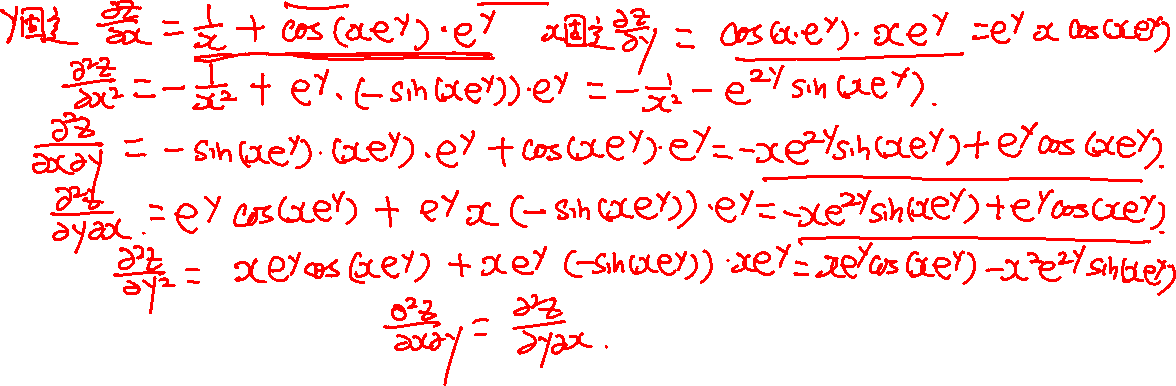 y固定 ∂z/∂x = 1/x + cos(xe^y)·e^y x固定 ∂z/∂y = cos(x·e^y)·xe^y = e^y x cos(xe^y)
∂²z/∂x² = -1/x² + e^y·(-sin(xe^y))·e^y = -1/x² - e^{2y} sin(xe^y).
∂²z/∂x∂y = -sin(xe^y)·(xe^y)·e^y + cos(xe^y)·e^y = -xe^{2y}sin(xe^y) + e^y cos(xe^y).
∂²z/∂y∂x. = e^y cos(xe^y) + e^y x (-sin(xe^y))·e^y = -xe^{2y}sin(xe^y) + e^y cos(xe^y).
∂²z/∂y² = xe^y cos(xe^y) + xe^y (-sin(xe^y))·xe^y = xe^y cos(xe^y) - x²e^{2y} sin(xe^y)
∂²z/∂x∂y = ∂²z/∂y∂x.